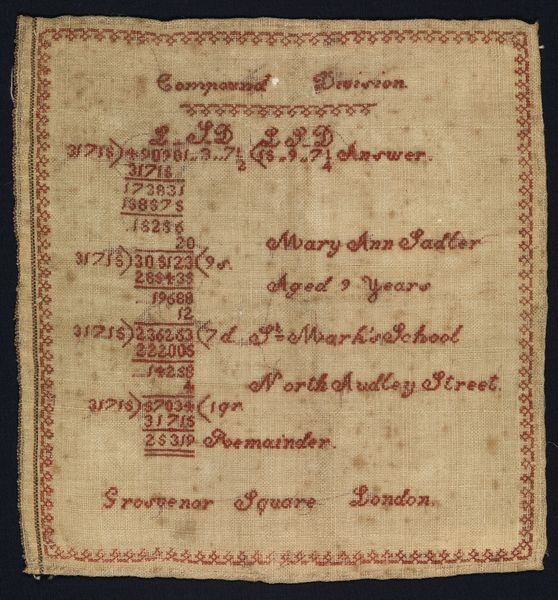 Compound Division
L S D L S D
31715)490981..3..7½(15..9..7¼ Answer.
31715
173831
158575
15256
20 Mary Ann Sadler
31715)305123(9s.
285435 Aged 9 Years
19688
12
31715)236263(7d. St. Mark's School
222005
14258
4 North Audley Street.
31715)57034(1qr.
31715
25319 Remainder.
Grosvenor Square London.